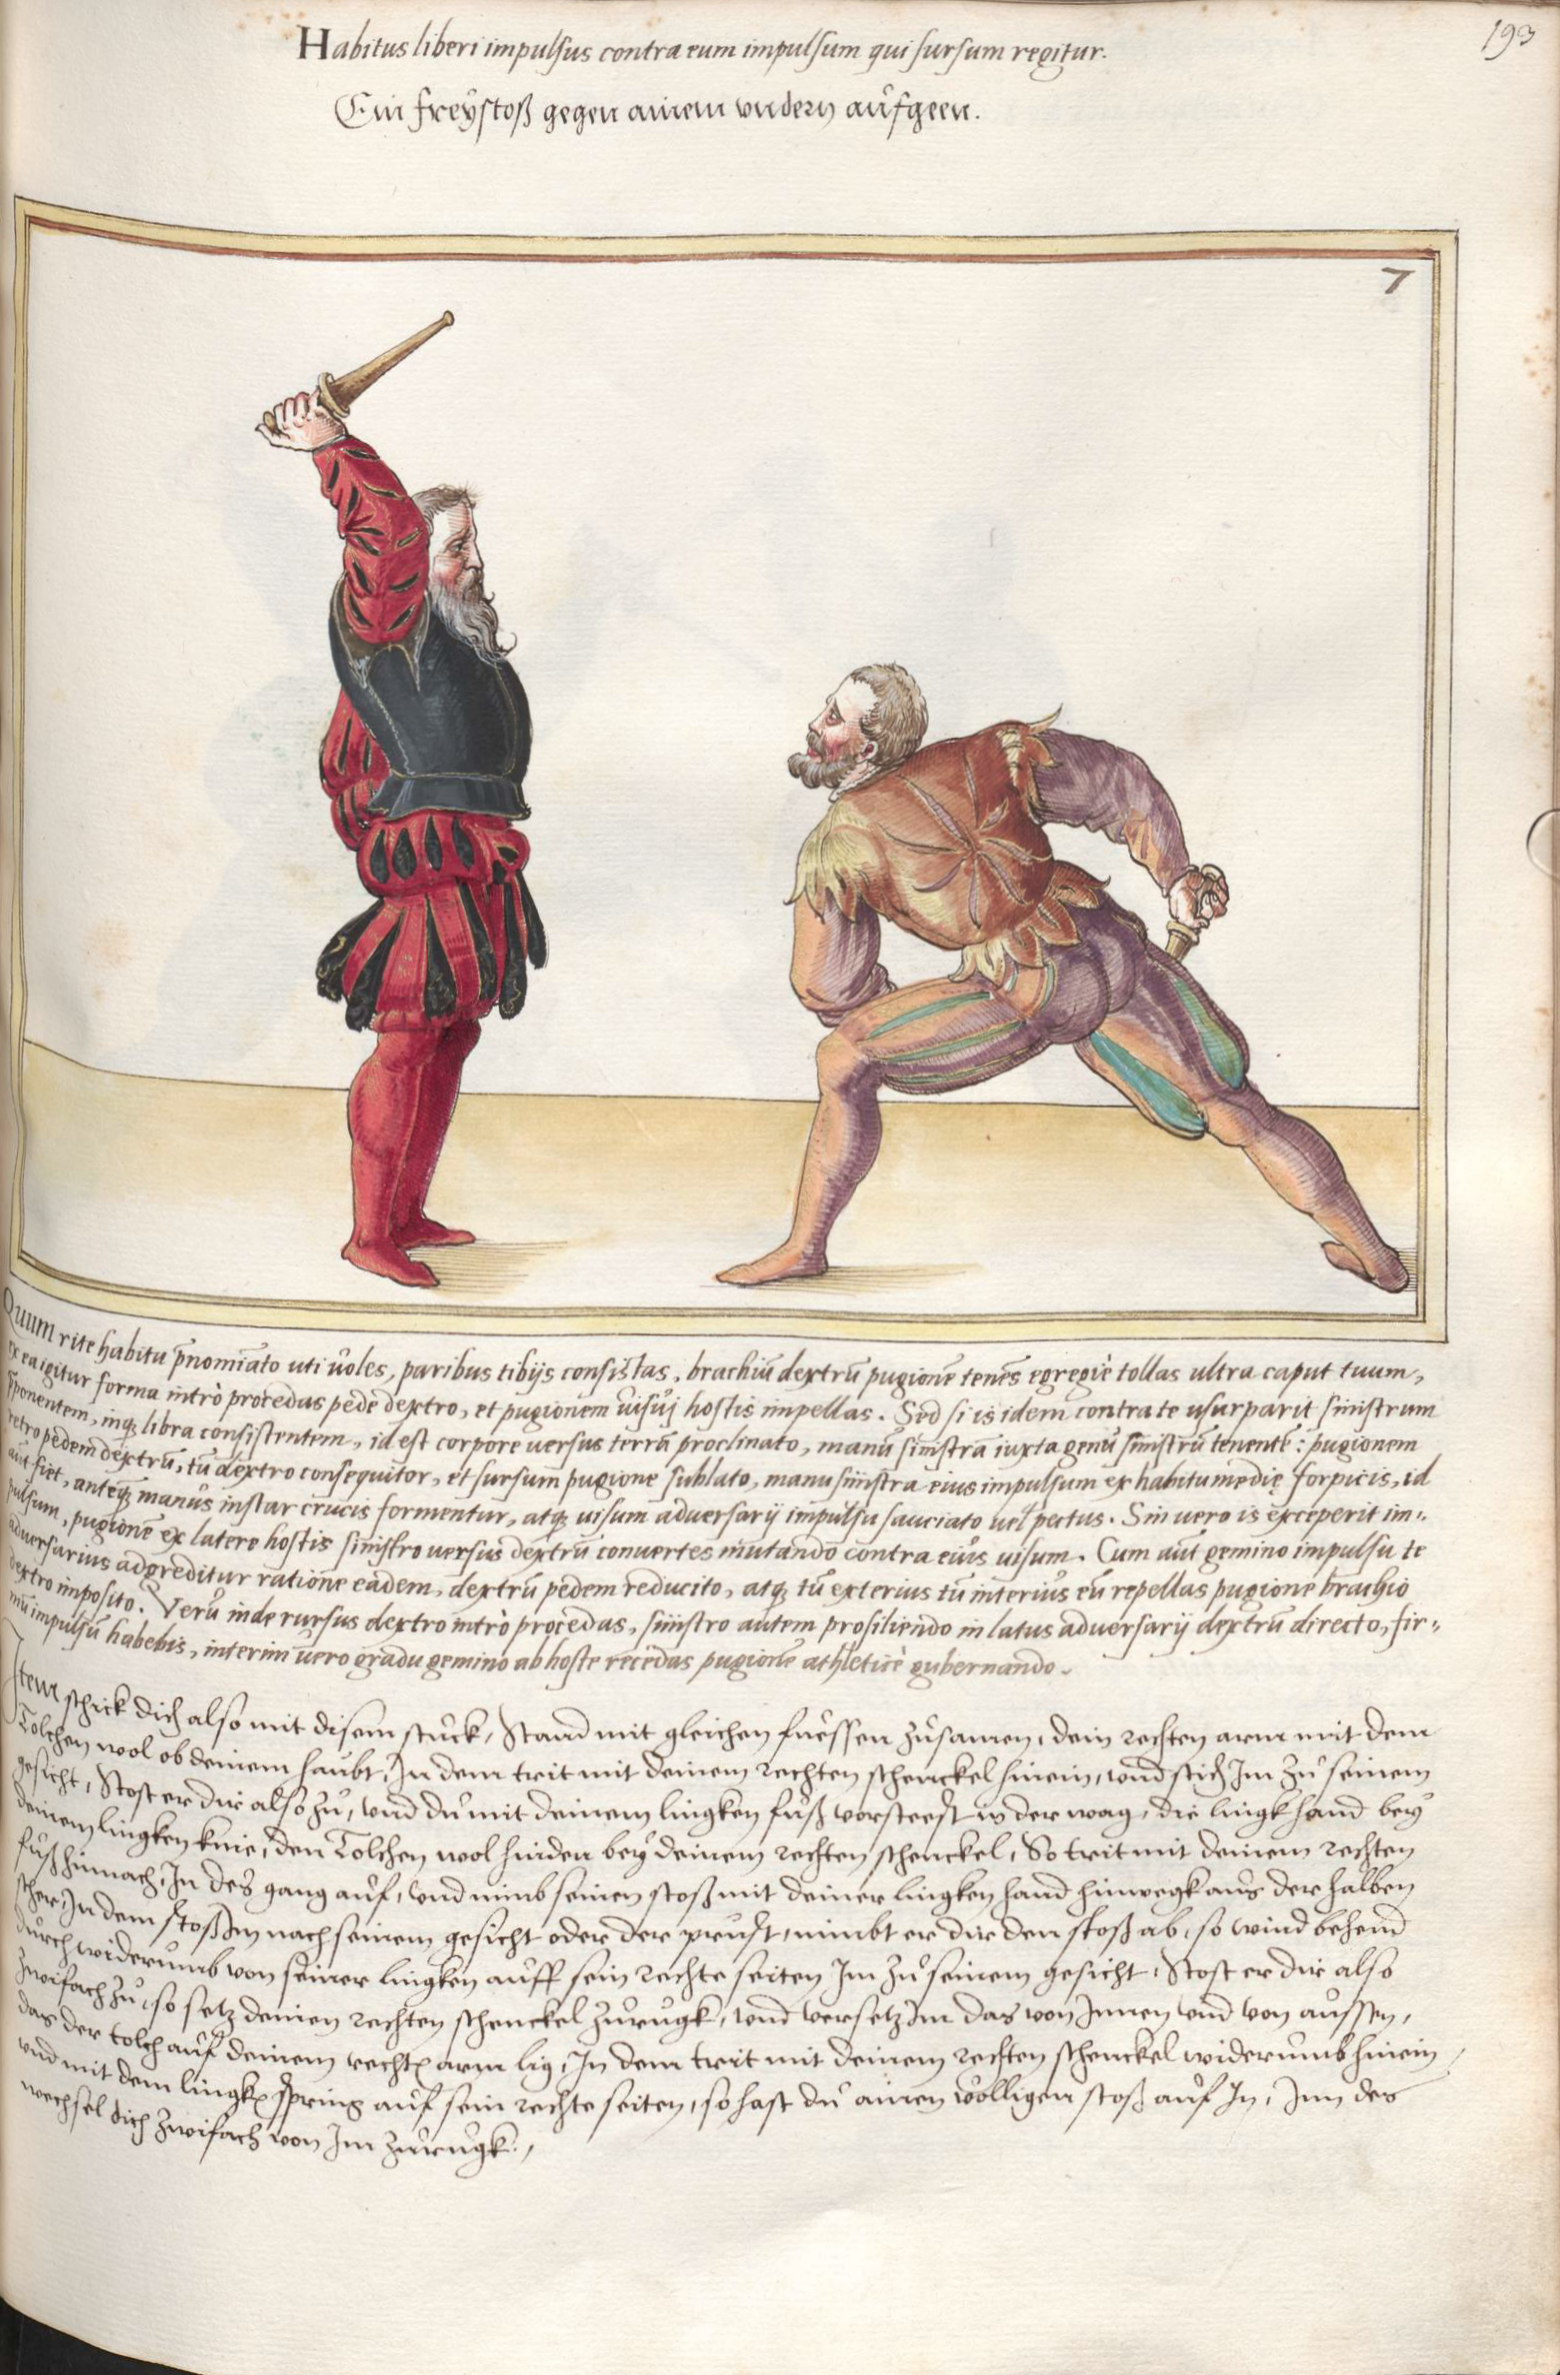 193
Habitus liberi impulsus contra eum impulsum qui sursum regitur.
Ein freÿstoß gegen ainem undern aůfgeen.
7
Quum rite habitu p̄nomiāto uti voles, paribus tibijs consistas, brachiū dextrū pugionē tenēs egregiè tollas ultra caput tuum,
ex ea igitur forma intrò procedas pede dextro, et pugionem uisui hostis impellas. Sed si is idem contra te usurparit sinistrum
p̄ponentem, inq; libra consistentem, id est corpore uersus terrā proclinato, manū sinistrā iuxta genu sinistrū tenente: pugionem
retro pedem dextrū, tū dextro consequitor, et sursum pugione sublato, manu sinistra eius impulsum ex habitu medię forpicis, id
aūt fiet, anteq̄ manus instar crucis formentur, atq; uisum aduersarij impulsu sauciato uel pectus. Sin uero is exceperit im-
pulsum, pugionē ex latere hostis sinistro uersus dextrū conuertes mutando contra eius uisum. Cum aūt gemino impulsu te
aduersarius adgreditur ratione eadem, dextrū pedem reducito, atq; tū exterius tū interius eū repellas pugione brachio
dextro imposito. Verū inde rursus dextro intrò procedas, sinistro autem prosiliendo in latus aduersarij dextrū directo, fir-
mū impulsū habebis, interim uero gradu gemino ab hoste recedas pugionē athleticè gubernando.
Item schick dich also mit disem stuck, Stand mit gleichen fuessen zůsamen, dein rechten arm mit dem
Tolchen wol ob deinem haubt, In dem trit mit deinem rechten schenckel hinein, und stich Im zů seinem
gesicht, Stost er dir also zů, und du mit deinem lingken fůß vorsteest in der wag, die lingk hand beÿ
deinem lingken knie, den Tolchen wol hinden beÿ deinem rechten schenckel, So trit mit deinem rechten
fůß hinnach, In des gang aůf, und nimb seinen stoß mit deiner lingken hand hinwegk aůs der halben
scher, In dem stoß Im nach seinem gesicht oder der prust, nimbt er dir den stoß ab, so wind behend
durch widerumb von seiner lingken aůff sein rechte seiten Im zů seinem gesicht, Stost er dir also
zwifach zů, so setz deinen rechten schenckel zurugk, und versetz Im das von Innen und von aůssen,
das der tolch aůf deinem rechtē arm lig, In dem trit mit deinem rechten schenckel widerumb hinein
und mit dem lingkē spring aůf sein rechte seiten, so hast dů ainen völligen stoß aůf In, Inn des
wechsel dich zwifach von Im zurugk.